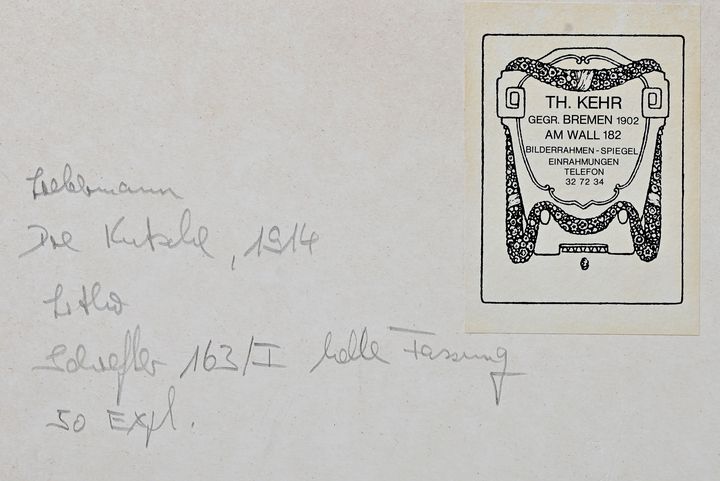 Liebermann
Die Kutsche, 1914
Litho
Schiefler 163/I helle Fassung
50 Expl.
TH. KEHR
GEGR. BREMEN 1902
AM WALL 182
BILDERRAHMEN - SPIEGEL
EINRAHMUNGEN
TELEFON
32 72 34